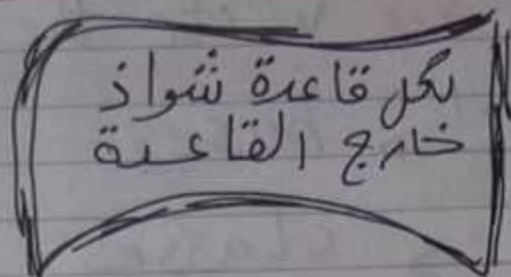 لكل قاعدة شواذ
خارج القاعدة